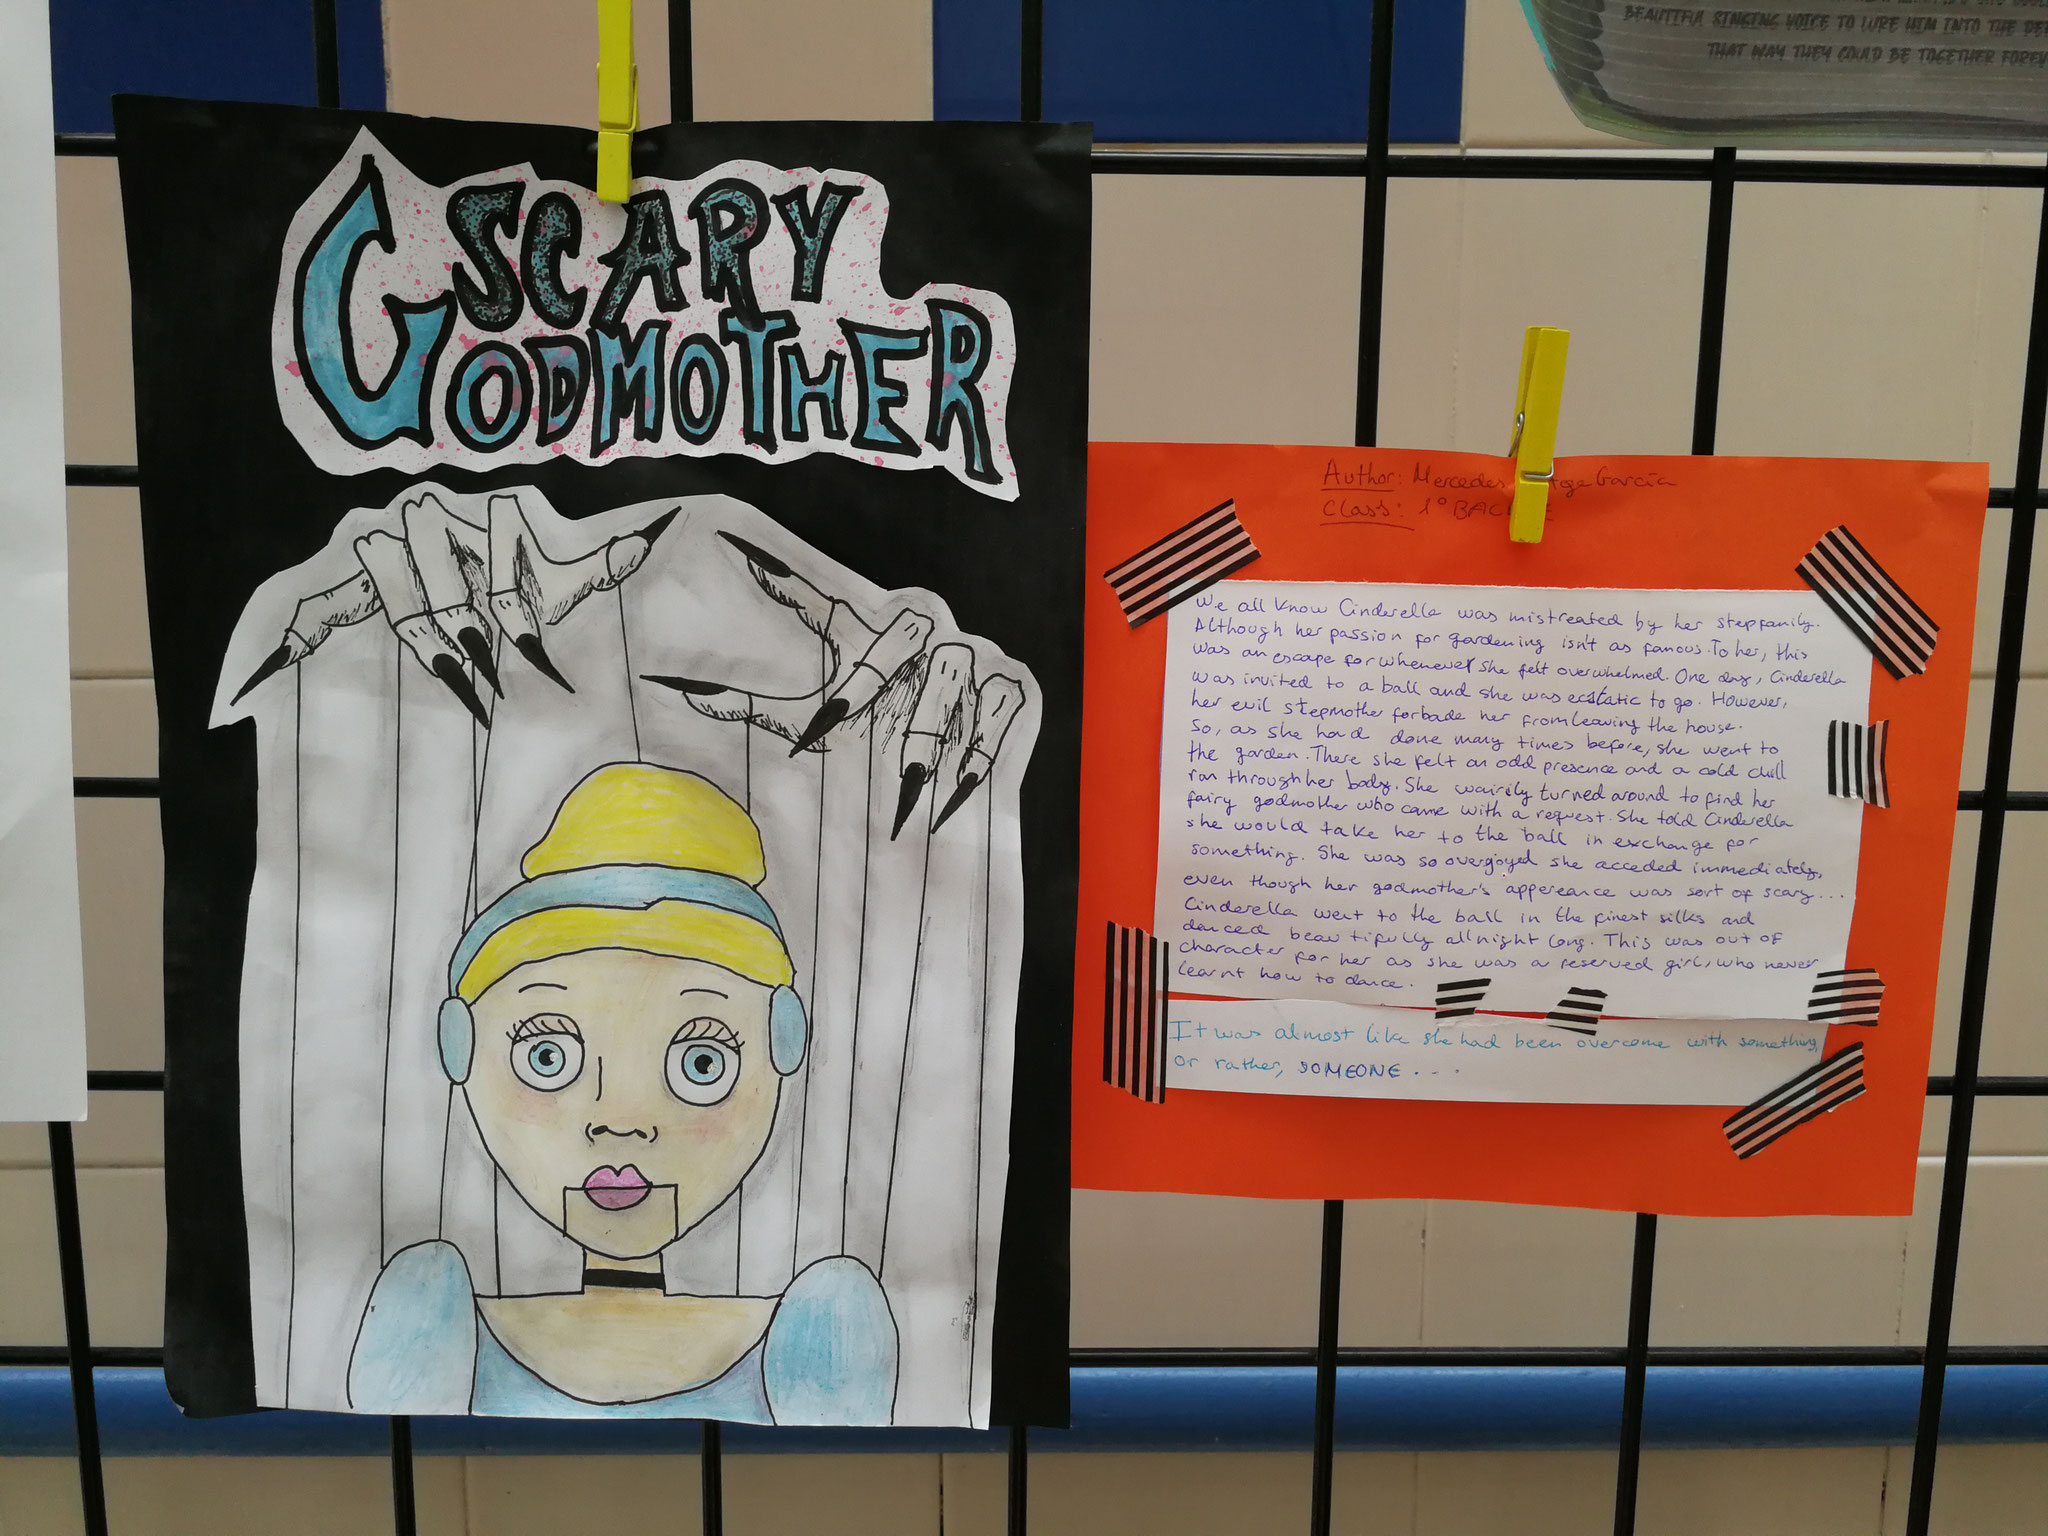 SCARY
GODMOTHER
Author: Mercedes García
Class: 1º
We all know Cinderella was mistreated by her stepfamily.
Although her passion for gardening isn't as famous. To her, this
was an escape for whenever she felt overwhelmed. One day, Cinderella
was invited to a ball and she was ecstatic to go. However,
her evil stepmother forbade her from leaving the house.
So, as she had done many times before, she went to
the garden. There she felt an odd presence and a cold chill
ran through her body. She wairily turned around to find her
fairy godmother who came with a request. She told Cinderella
she would take her to the ball in exchange for
something. She was so overjoyed she acceded immediately,
even though her godmother's appereance was sort of scary...
Cinderella went to the ball in the finest silks and
danced beautifully all night long. This was out of
character for her as she was a reserved girl, who never
learnt how to dance.
It was almost like she had been overcome with something,
or rather, SOMEONE...
BEAUTIFUL SINGING VOICE TO LURE HIM INTO THE
THAT WAY THEY COULD BE TOGETHER